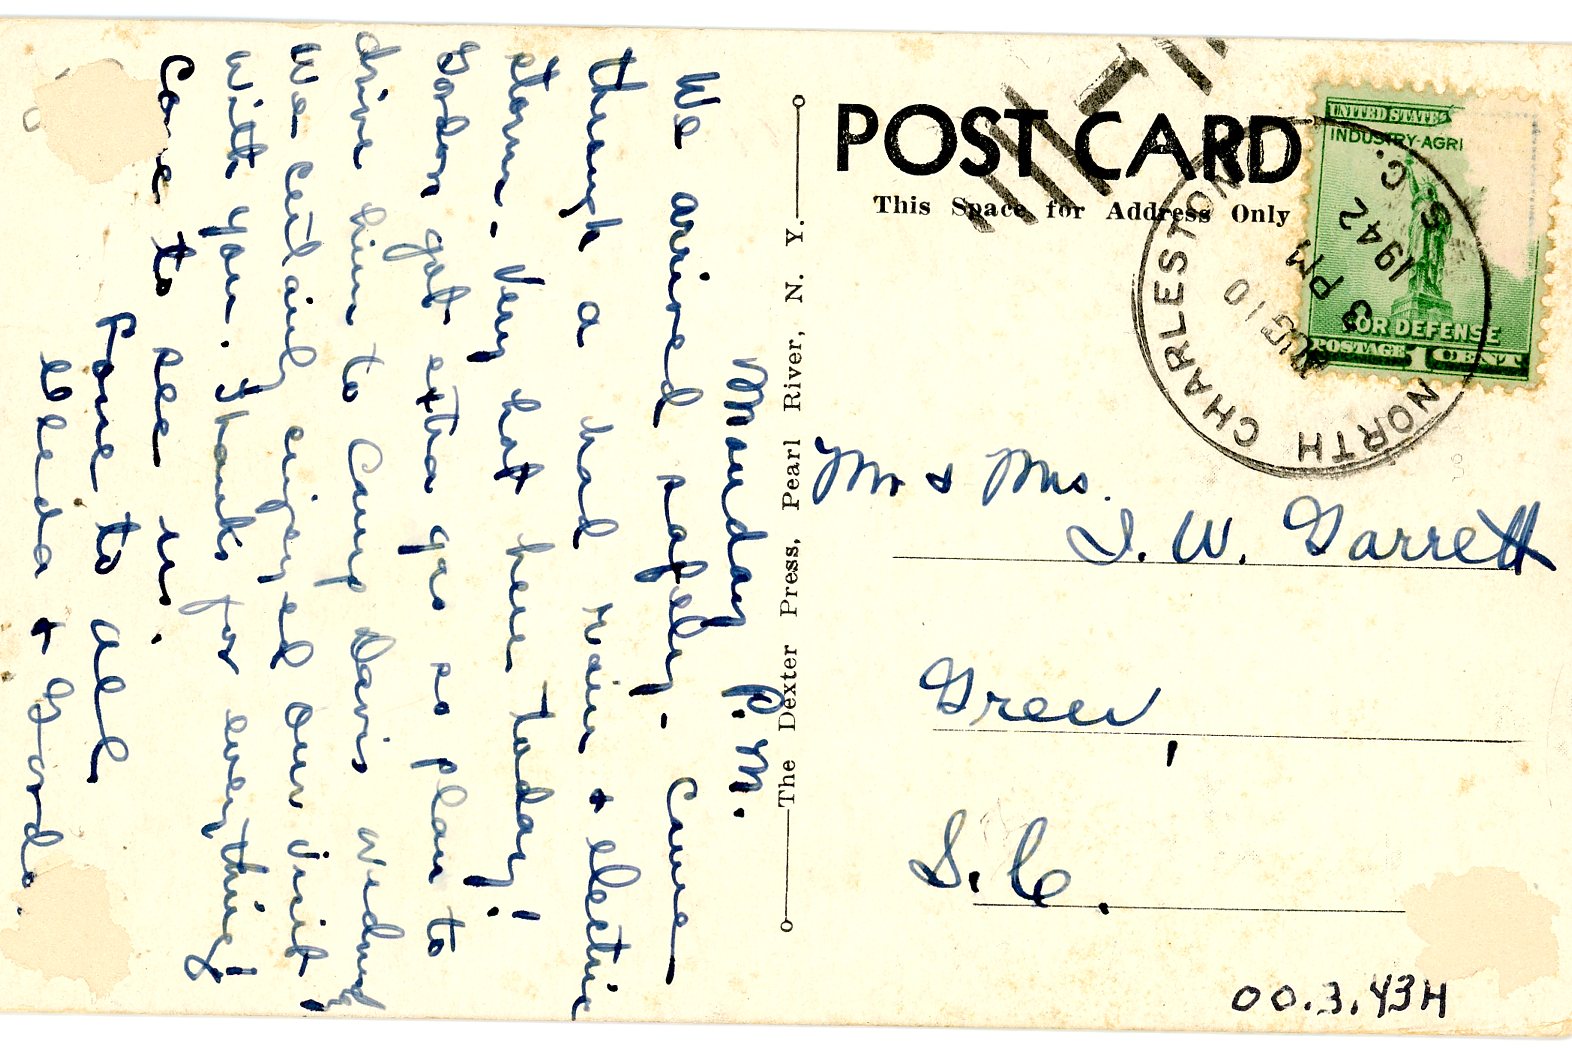 POST CARD
This Space for Address Only
UNITED STATES
INDUSTRY-AGRI
FOR DEFENSE
POSTAGE 1 CENT
NORTH CHARLESTON S. C.
AUG 10
3 PM
1942
The Dexter Press, Pearl River, N. Y.
Monday P.M.
We arrived safely. Came
through a hard rain & electric
storm. Very hot here today!
Gordon got extra gas so plan to
drive him to Camp Davis
We certainly enjoyed our visit!
with you. Thanks for everything!
Come to see us.
Love to all
Eleda & Gordo.
Mr & Mrs.
J. W. Garrett
Greer,
S.C.
00.3.43H